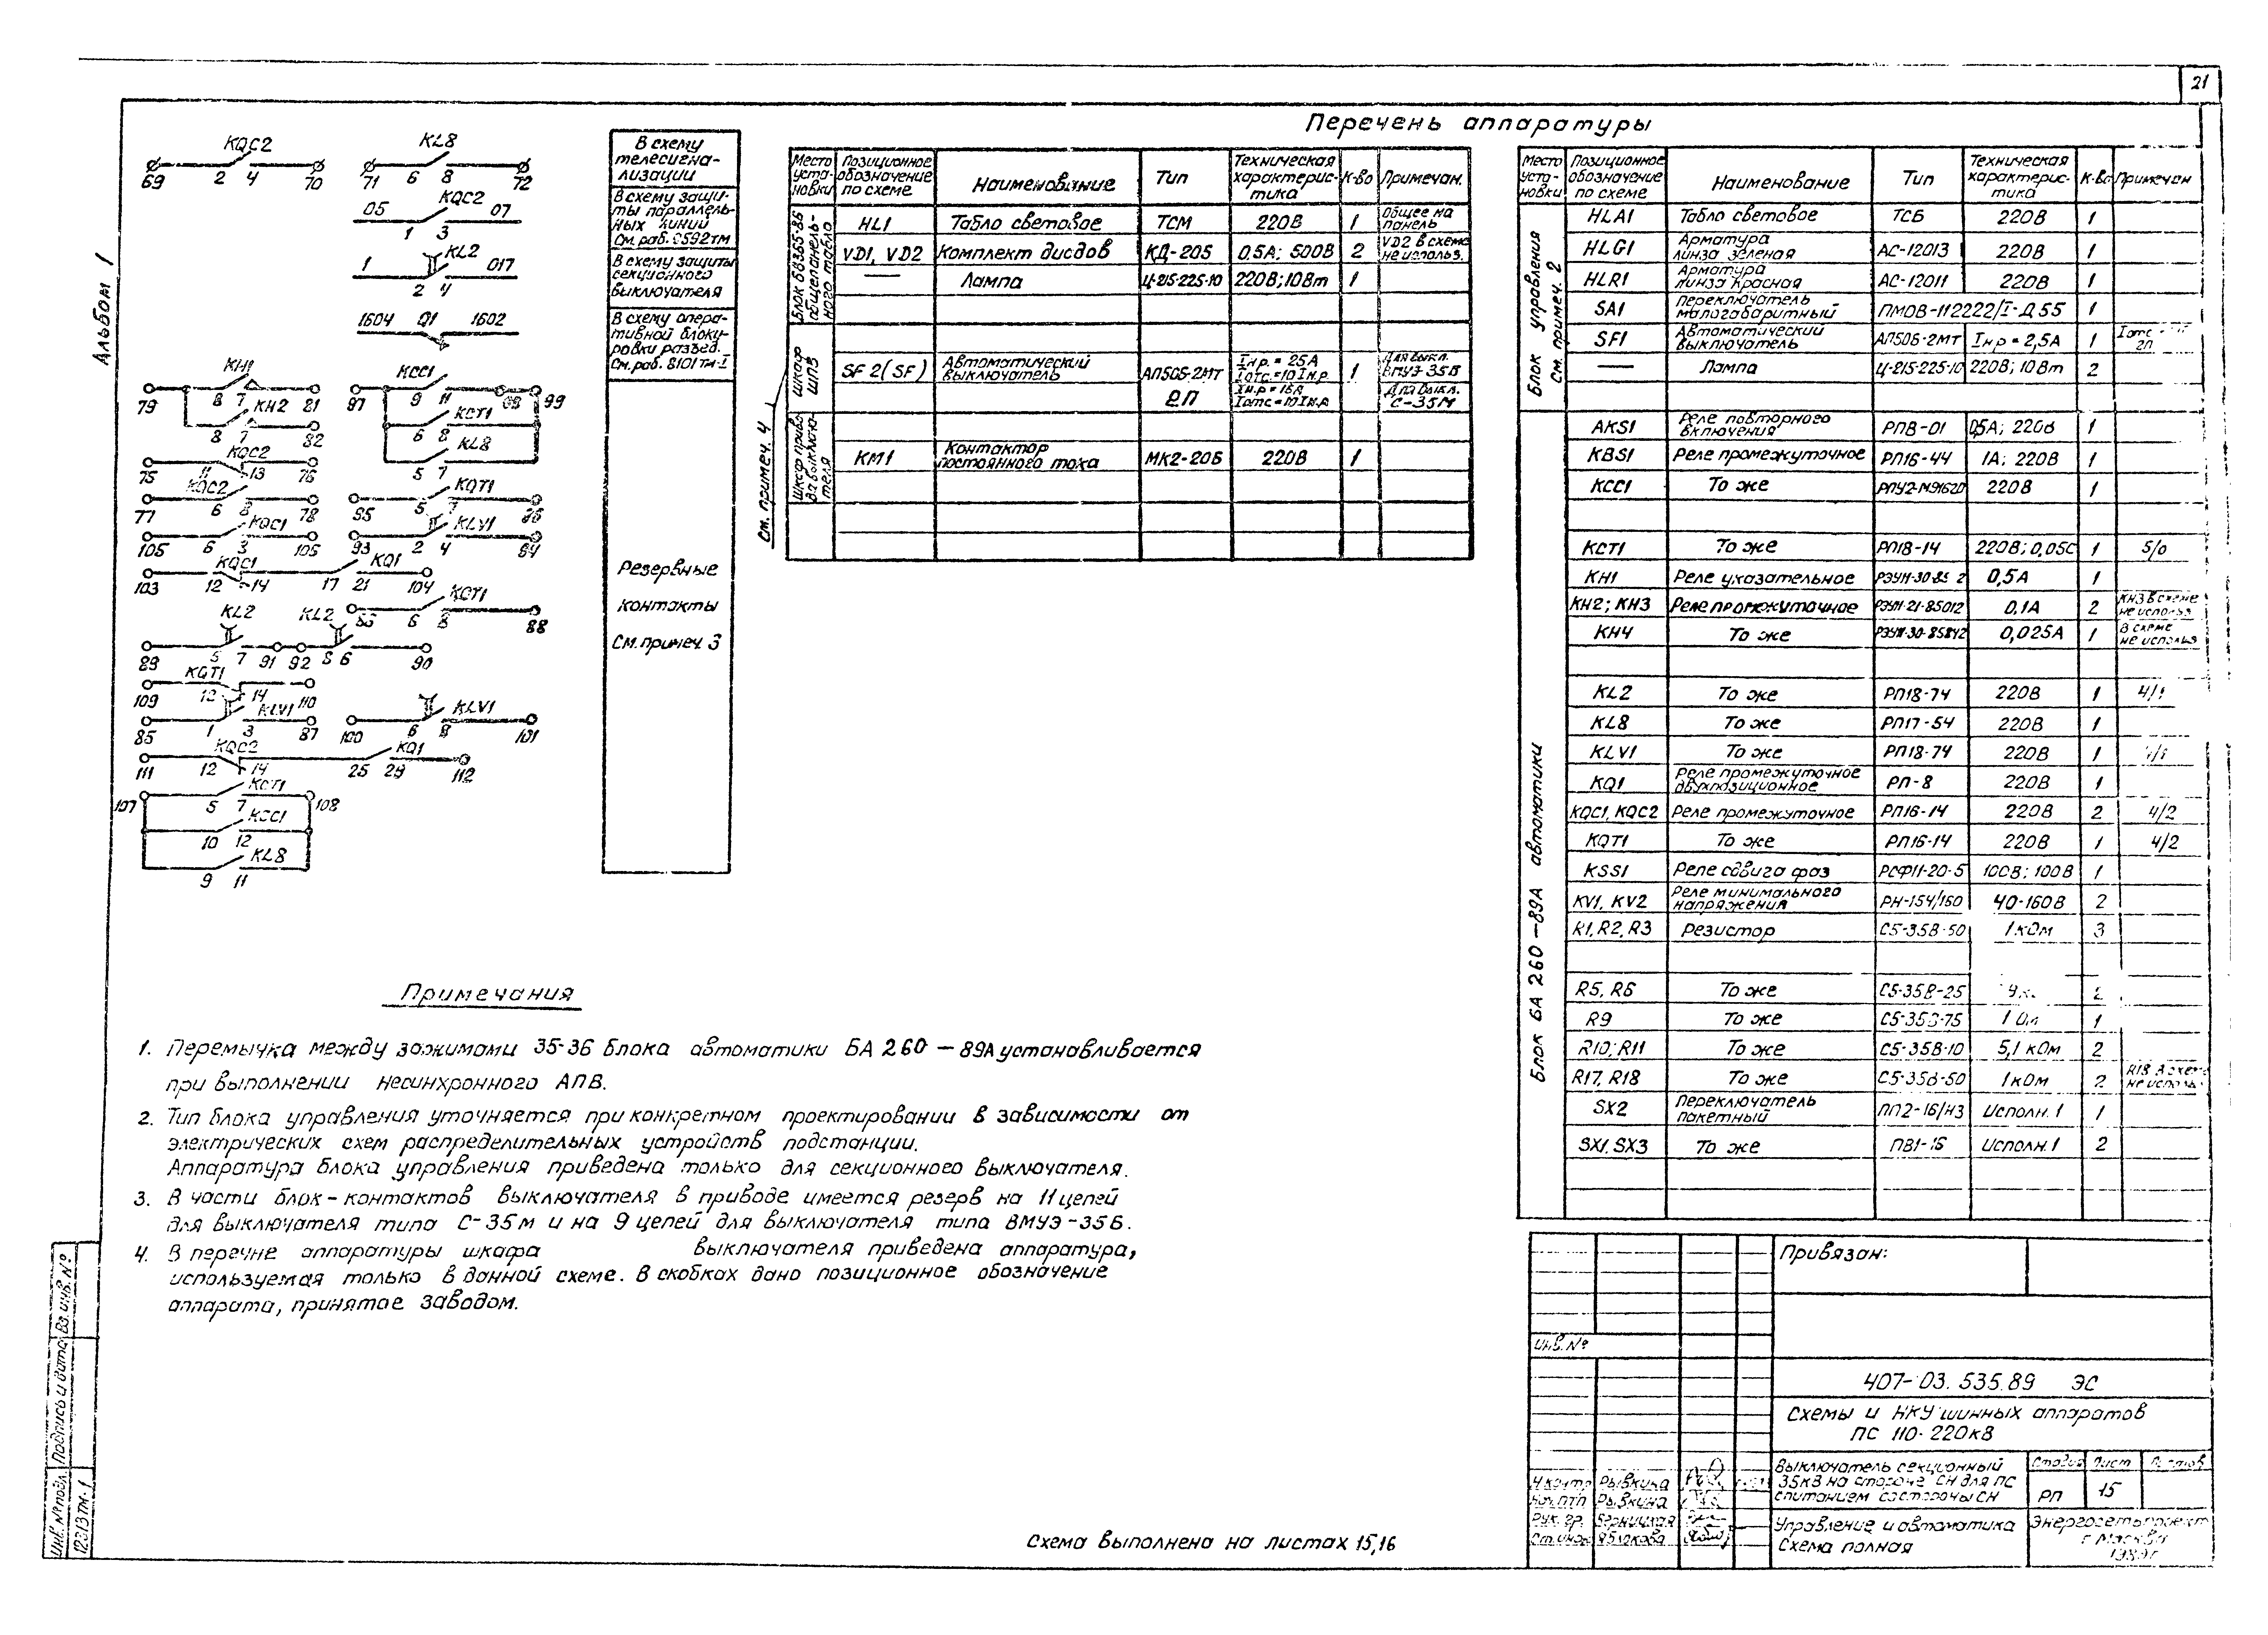 21
Альбом 1
Перечень аппаратуры
KQC2
69 2 4 70
KL8
71 6 8 72
KQC2
05 07
1 3
KL2
1 017
2 4
1604 Q1 1602
KH1
79 8 7 81
KH2
8 7 82
KCC1
97 9 11 98 99
KCT1
6 8
KL8
5 7
KQC2
75 11 13 76
KQC2
77 6 8 78
KQT1
95 5 7 96
KQC1
105 6 3 106
KLV1
93 2 4 94
KQC1 KQ1
103 12 14 17 21 104
KCT1
86 6 8 88
KL2 KL2
89 5 7 91 92 8 6 90
KQT1
109 12 14 110
KLV1
85 1 3 87
KLV1
100 6 8 101
KQC2 KQ1
111 12 14 25 29 112
KCT1
107 5 7 108
KCC1
10 12
KL8
9 11
В схему
телесигна-
лизации
В схему защи-
ты параллель-
ных линий
См. раб. 8592тм
В схему защиты
секционного
выключателя
В схему опера-
тивной блоки-
ровки разъед.
См. раб. 8101тм-I
Резервные
контакты
См. примеч. 3
Место установки Позиционное обозначение по схеме Наименование Тип Техническая характеристика К-во Примечан.
Блок БВ365-86 общепанельного табло
HL1 Табло световое ТСМ 220В 1 Общее на панель
VD1, VD2 Комплект диодов КД-205 0,5А; 500В 2 VD2 в схеме не использ.
— Лампа Ц-215-225-10 220В; 10Вт 1
см. примеч. 4
Шкаф ШПВ
SF2 (SF) Автоматический выключатель АП50Б-2МТ 2П Iн.р = 25А Iотс = 10 Iн.р 1 Для выкл. ВМУЭ-35Б
Iн.р = 16А Iотс = 10 Iн.р Для выкл. С-35М
Шкаф привода выключателя
KM1 Контактор постоянного тока МК2-20Б 220В 1
Место установки Позиционное обозначение по схеме Наименование Тип Техническая характеристика К-во Примечан
Блок управления См. примеч. 2
HLA1 Табло световое ТСБ 220В 1
HLG1 Арматура линза зеленая АС-12013 220В 1
HLR1 Арматура линза красная АС-12011 220В 1
SA1 Переключатель малогабаритный ПМОВ-112222/I-Д55 1
SF1 Автоматический выключатель АП50Б-2МТ Iн.р = 2,5А 1 Iотс 2П
— Лампа Ц-215-225-10 220В; 10Вт 2
Блок БА 260-89А автоматики
AKS1 Реле повторного включения РПВ-01 0,5А; 220В 1
KBS1 Реле промежуточное РП16-44 1А; 220В 1
KCC1 То же 220В 1
KCT1 То же РП18-14 220В; 0,05С 1 5/0
KH1 Реле указательное РЭУ11-30-85 2 0,5А 1
KH2; KH3 Реле промежуточное РЭУ11-21-85012 0,1А 2 KH3 в схеме не использ.
KH4 То же РЭУ11-30-85842 0,025А 1 В схеме не использ.
KL2 То же РП18-74 220В 1 4/1
KL8 То же РП17-54 220В 1
KLV1 То же РП18-74 220В 1
KQ1 Реле промежуточное двухпозиционное РП-8 220В 1
KQC1, KQC2 Реле промежуточное РП16-14 220В 2 4/2
KQT1 То же РП16-14 220В 1 4/2
KSS1 Реле сдвига фаз РСФ11-20-5 100В; 100В 1
KV1, KV2 Реле минимального напряжения РН-154/160 40-160В 2
R1, R2, R3 Резистор С5-35В-50 1 кОм 3
R5, R6 То же С5-35В-25 2
R9 То же С5-35В-75 1 Ом 1
R10; R11 То же С5-35В-10 5,1 кОм 2
R17, R18 То же С5-35В-50 1 кОм 2 R18 в схеме не использ.
SX2 Переключатель пакетный ПП2-16/Н3 Исполн. 1 1
SX1, SX3 То же ПВ1-16 Исполн. 1 2
Примечания
1. Перемычка между зажимами 35-36 блока автоматики БА 260 – 89А устанавливается
при выполнении несинхронного АПВ.
2. Тип блока управления уточняется при конкретном проектировании в зависимости от
электрических схем распределительных устройств подстанции.
Аппаратура блока управления приведена только для секционного выключателя.
3. В части блок-контактов выключателя в приводе имеется резерв на 11 цепей
для выключателя типа С-35м и на 9 цепей для выключателя типа ВМУЭ-35Б.
4. В перечне аппаратуры шкафа выключателя приведена аппаратура,
используемая только в данной схеме. В скобках дано позиционное обозначение
аппарата, принятое заводом.
Схема выполнена на листах 15,16
Привязан:
Инв. №
407-03.535.89 ЭС
Схемы и НКУ шинных аппаратов
ПС 110-220кВ
Выключатель секционный
35кВ на стороне СН для ПС
с питанием со стороны СН
Стадия Лист Листов
РП 15
Управление и автоматика
Схема полная
Энергосетьпроект
г. Москва
1989г
Н.контр Рывкина
Нач.ПТП Рывкина
Рук. гр.
Ст. инж. Яблокова
Взам. инв. №
Подпись и дата
Инв. № подл.
12313тм-1